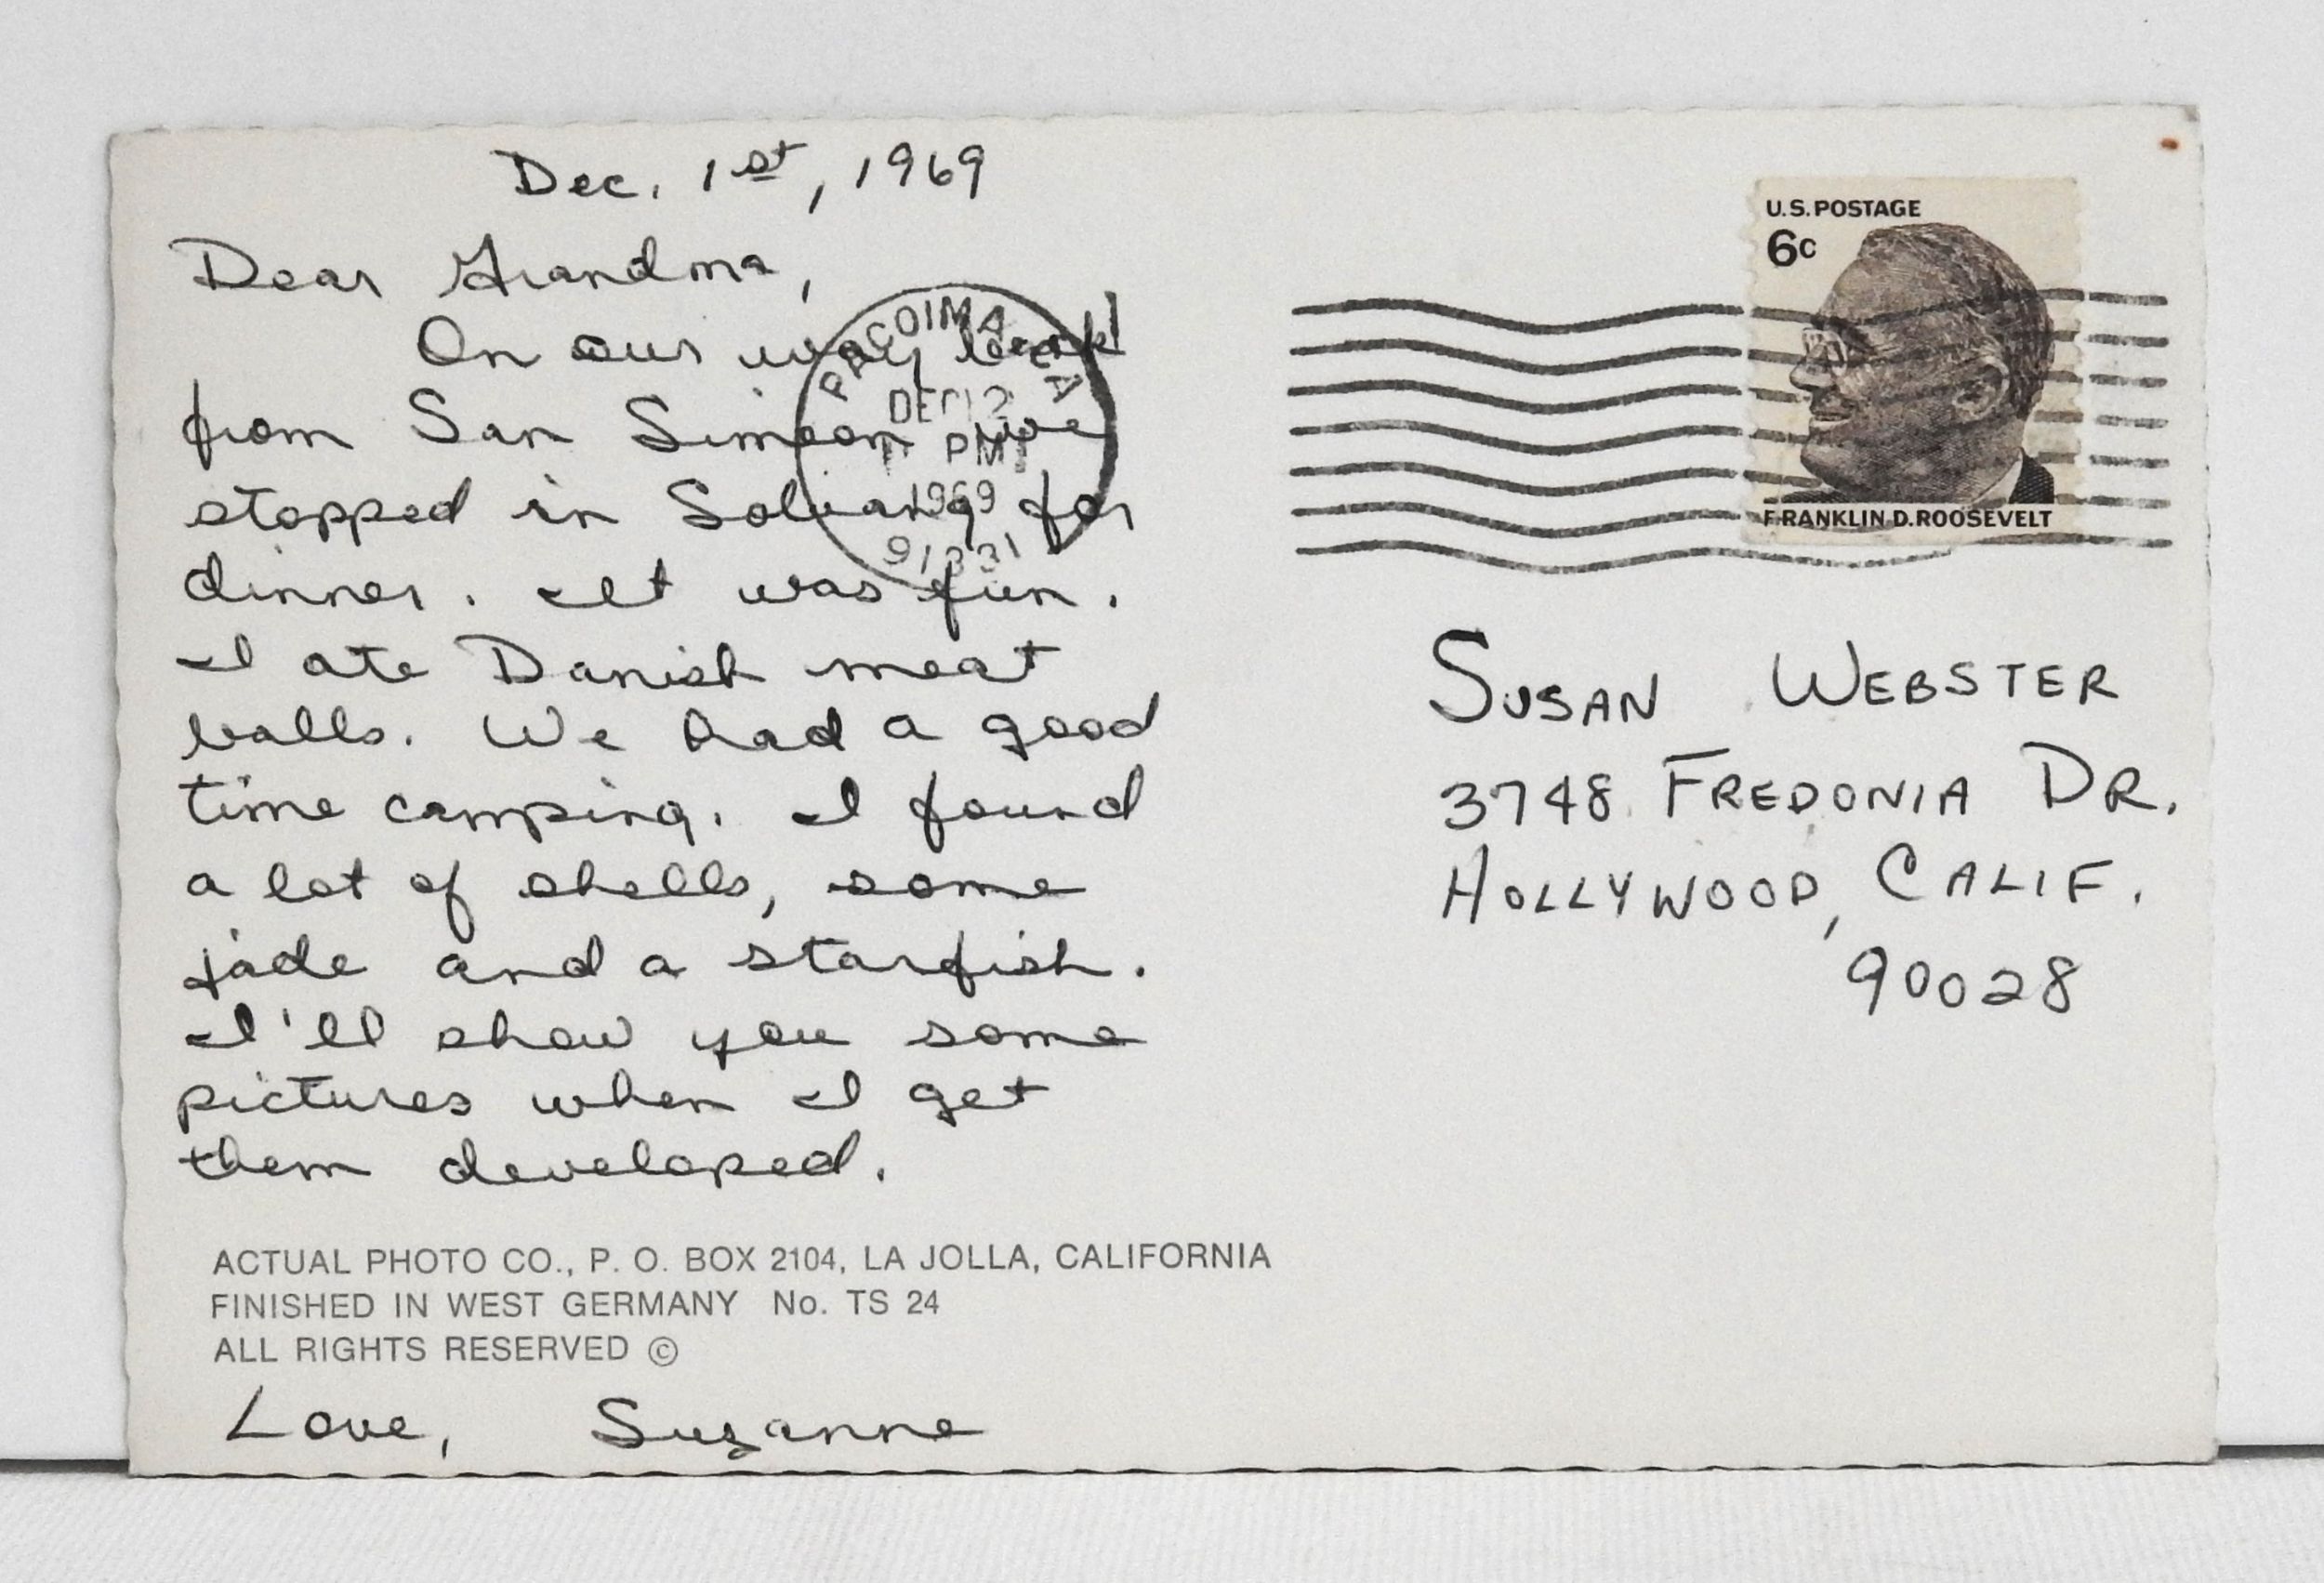 Dec. 1st, 1969
Dear Grandma,
On our way back
from San Simeon we
stopped in Solvang for
dinner. It was fun.
I ate Danish meat
balls. We had a good
time camping. I found
a lot of shells, some
jade and a starfish.
I'll show you some
pictures when I get
them developed.
ACTUAL PHOTO CO., P. O. BOX 2104, LA JOLLA, CALIFORNIA
FINISHED IN WEST GERMANY No. TS 24
ALL RIGHTS RESERVED ©
Love, Suzanne
PACOIMA CA
DEC 2
PM
1969
91331
U.S. POSTAGE
6c
FRANKLIN D. ROOSEVELT
SUSAN WEBSTER
3748 FREDONIA DR.
HOLLYWOOD, CALIF.
90028